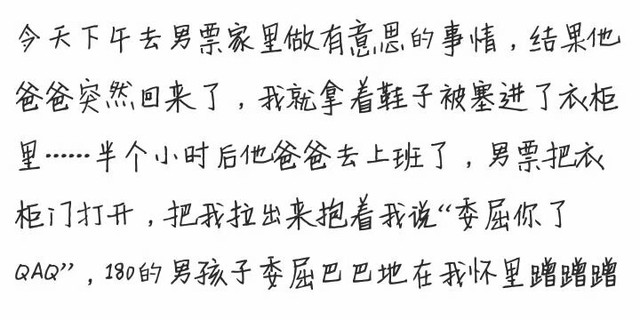 今天下午去男票家里做有意思的事情，结果他
爸爸突然回来了，我就拿着鞋子被塞进了衣柜
里……半个小时后他爸爸去上班了，男票把衣
柜门打开，把我拉出来抱着我说“委屈你了
QAQ”，180的男孩子委屈巴巴地在我怀里蹭蹭蹭